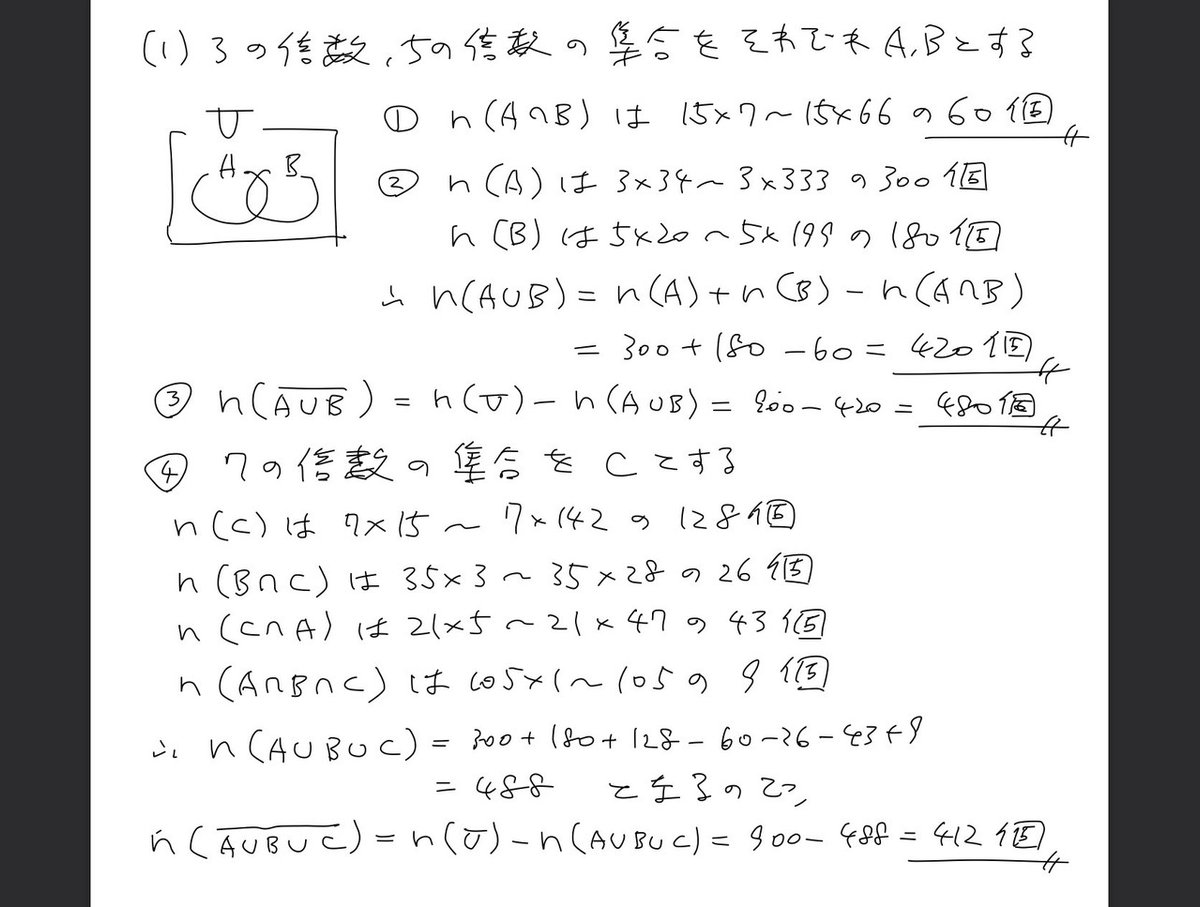 (1) 3の倍数,5の倍数の集合をそれぞれA,Bとする
U
A B
① n(A∩B) は 15×7～15×66 の 60個
② n(A) は 3×34～3×333 の 300個
n(B) は 5×20～5×199 の 180個
∴ n(A∪B) = n(A)+n(B)-n(A∩B)
= 300+180-60 = 420個
③ n(\overline{A∪B}) = n(U)-n(A∪B) = 900-420 = 480個
④ 7の倍数の集合をCとする
n(C) は 7×15～7×142 の 128個
n(B∩C) は 35×3～35×28 の 26個
n(C∩A) は 21×5～21×47 の 43個
n(A∩B∩C) は 105×1～105の 9個
∴ n(A∪B∪C) = 300+180+128-60-26-43+9
= 488 となるので、
n(\overline{A∪B∪C}) = n(U)-n(A∪B∪C) = 900-488 = 412個